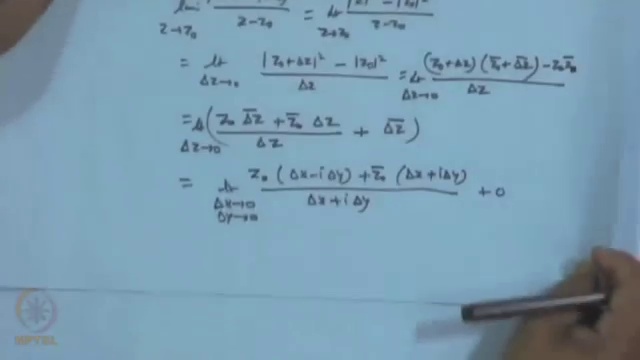 lim / z→z₀ ... / z-z₀ = lt / z→z₀ |z|² - |z₀|² / z-z₀
= lt / Δz→0 |z₀+Δz|² - |z₀|² / Δz = lt / Δz→0 (z₀+Δz)(z̅₀+Δ̅z̅) - z₀z̅₀ / Δz
= lt / Δz→0 ( z₀ Δ̅z̅ + z̅₀ Δz / Δz + Δ̅z̅ )
= lt / Δx→0 Δy→0 z₀ (Δx-iΔy) + z̅₀ (Δx+iΔy) / Δx+iΔy + 0
NPTEL